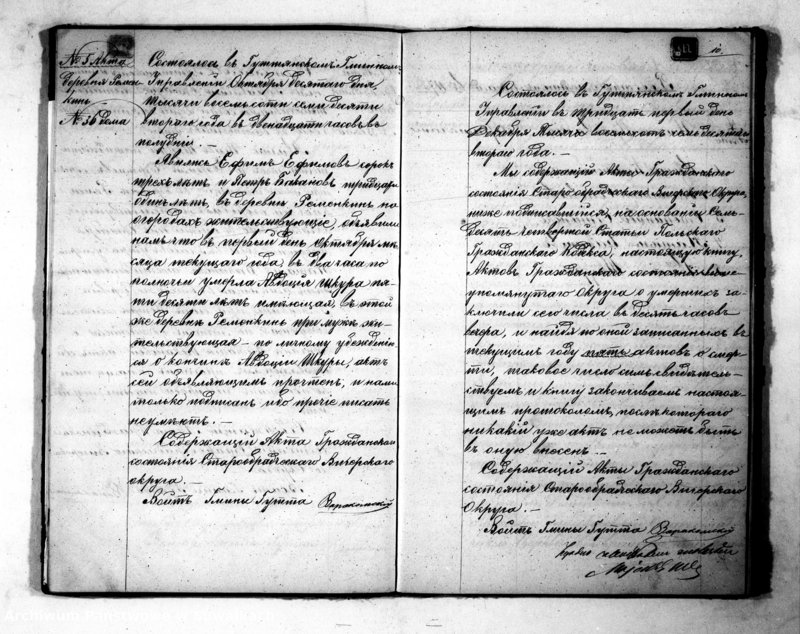 № 5 Акта
деревня Ремен
кинь
№ 36 дома
Состоялось въ Гуттянскомъ Гминномъ
Управленіи Октября десятаго дня
тысяча восемьсотъ семьдесятъ
втораго года въ двенадцать часовъ въ
полудни. —
Явились Ефимъ Ефимовъ сорокъ
трехъ лѣтъ и Петръ Бабановъ тридцать
одинъ лѣтъ, въ деревни Ременкинь на
огородахъ жительствующіе, объявили
намъ что въ первый день Октября мѣ-
сяца текущаго года, въ два часа по
полночи умерла Авдоція Шкура пя-
тидесяти лѣтъ имѣющая, въ этой
же деревни Ременкинь при мужѣ жи-
тельствующая — по личному убежденію
о кончинѣ Авдоціи Шкуры, актъ
сей объявляющимъ прочтенъ, и нами
только подписанъ ибо прочіе писать
неумѣютъ. —
Содержащій Акта Гражданскаго
состоянія Старообрядческаго Вигерскаго
округа. —
Войтъ Гмины Гутта
10
Состоялось въ Гуттянскомъ Гминномъ
Управленіи въ тридцать первый день
Декабря Тысяча восемьсотъ семьдесятъ
втораго года. —
Мы содержащій Акта Гражданскаго
состоянія Старообрядческаго Вигерскаго Округа,
ниже подписавшійся, на основаніи Семь-
десятъ четвертой Статьи Польскаго
Гражданскаго Кодекса, настоящую книгу,
Актовъ Гражданскаго состоянія выше-
упомянутаго Округа о умершихъ за-
ключили сего числа въ десять часовъ
вечера, и найдя по оной записанныхъ въ
текущимъ году пять актовъ о смер-
ти, таковое число симъ свидѣтель-
ствуемъ и книгу заканчиваемъ настоя-
щимъ протоколомъ, послѣ котораго
никакій уже актъ не можетъ быть
въ оную внесенъ. —
Содержащій Акты Гражданскаго
состоянія Старообрядческаго Вигерскаго
Округа. —
Войтъ Гмины Гутта